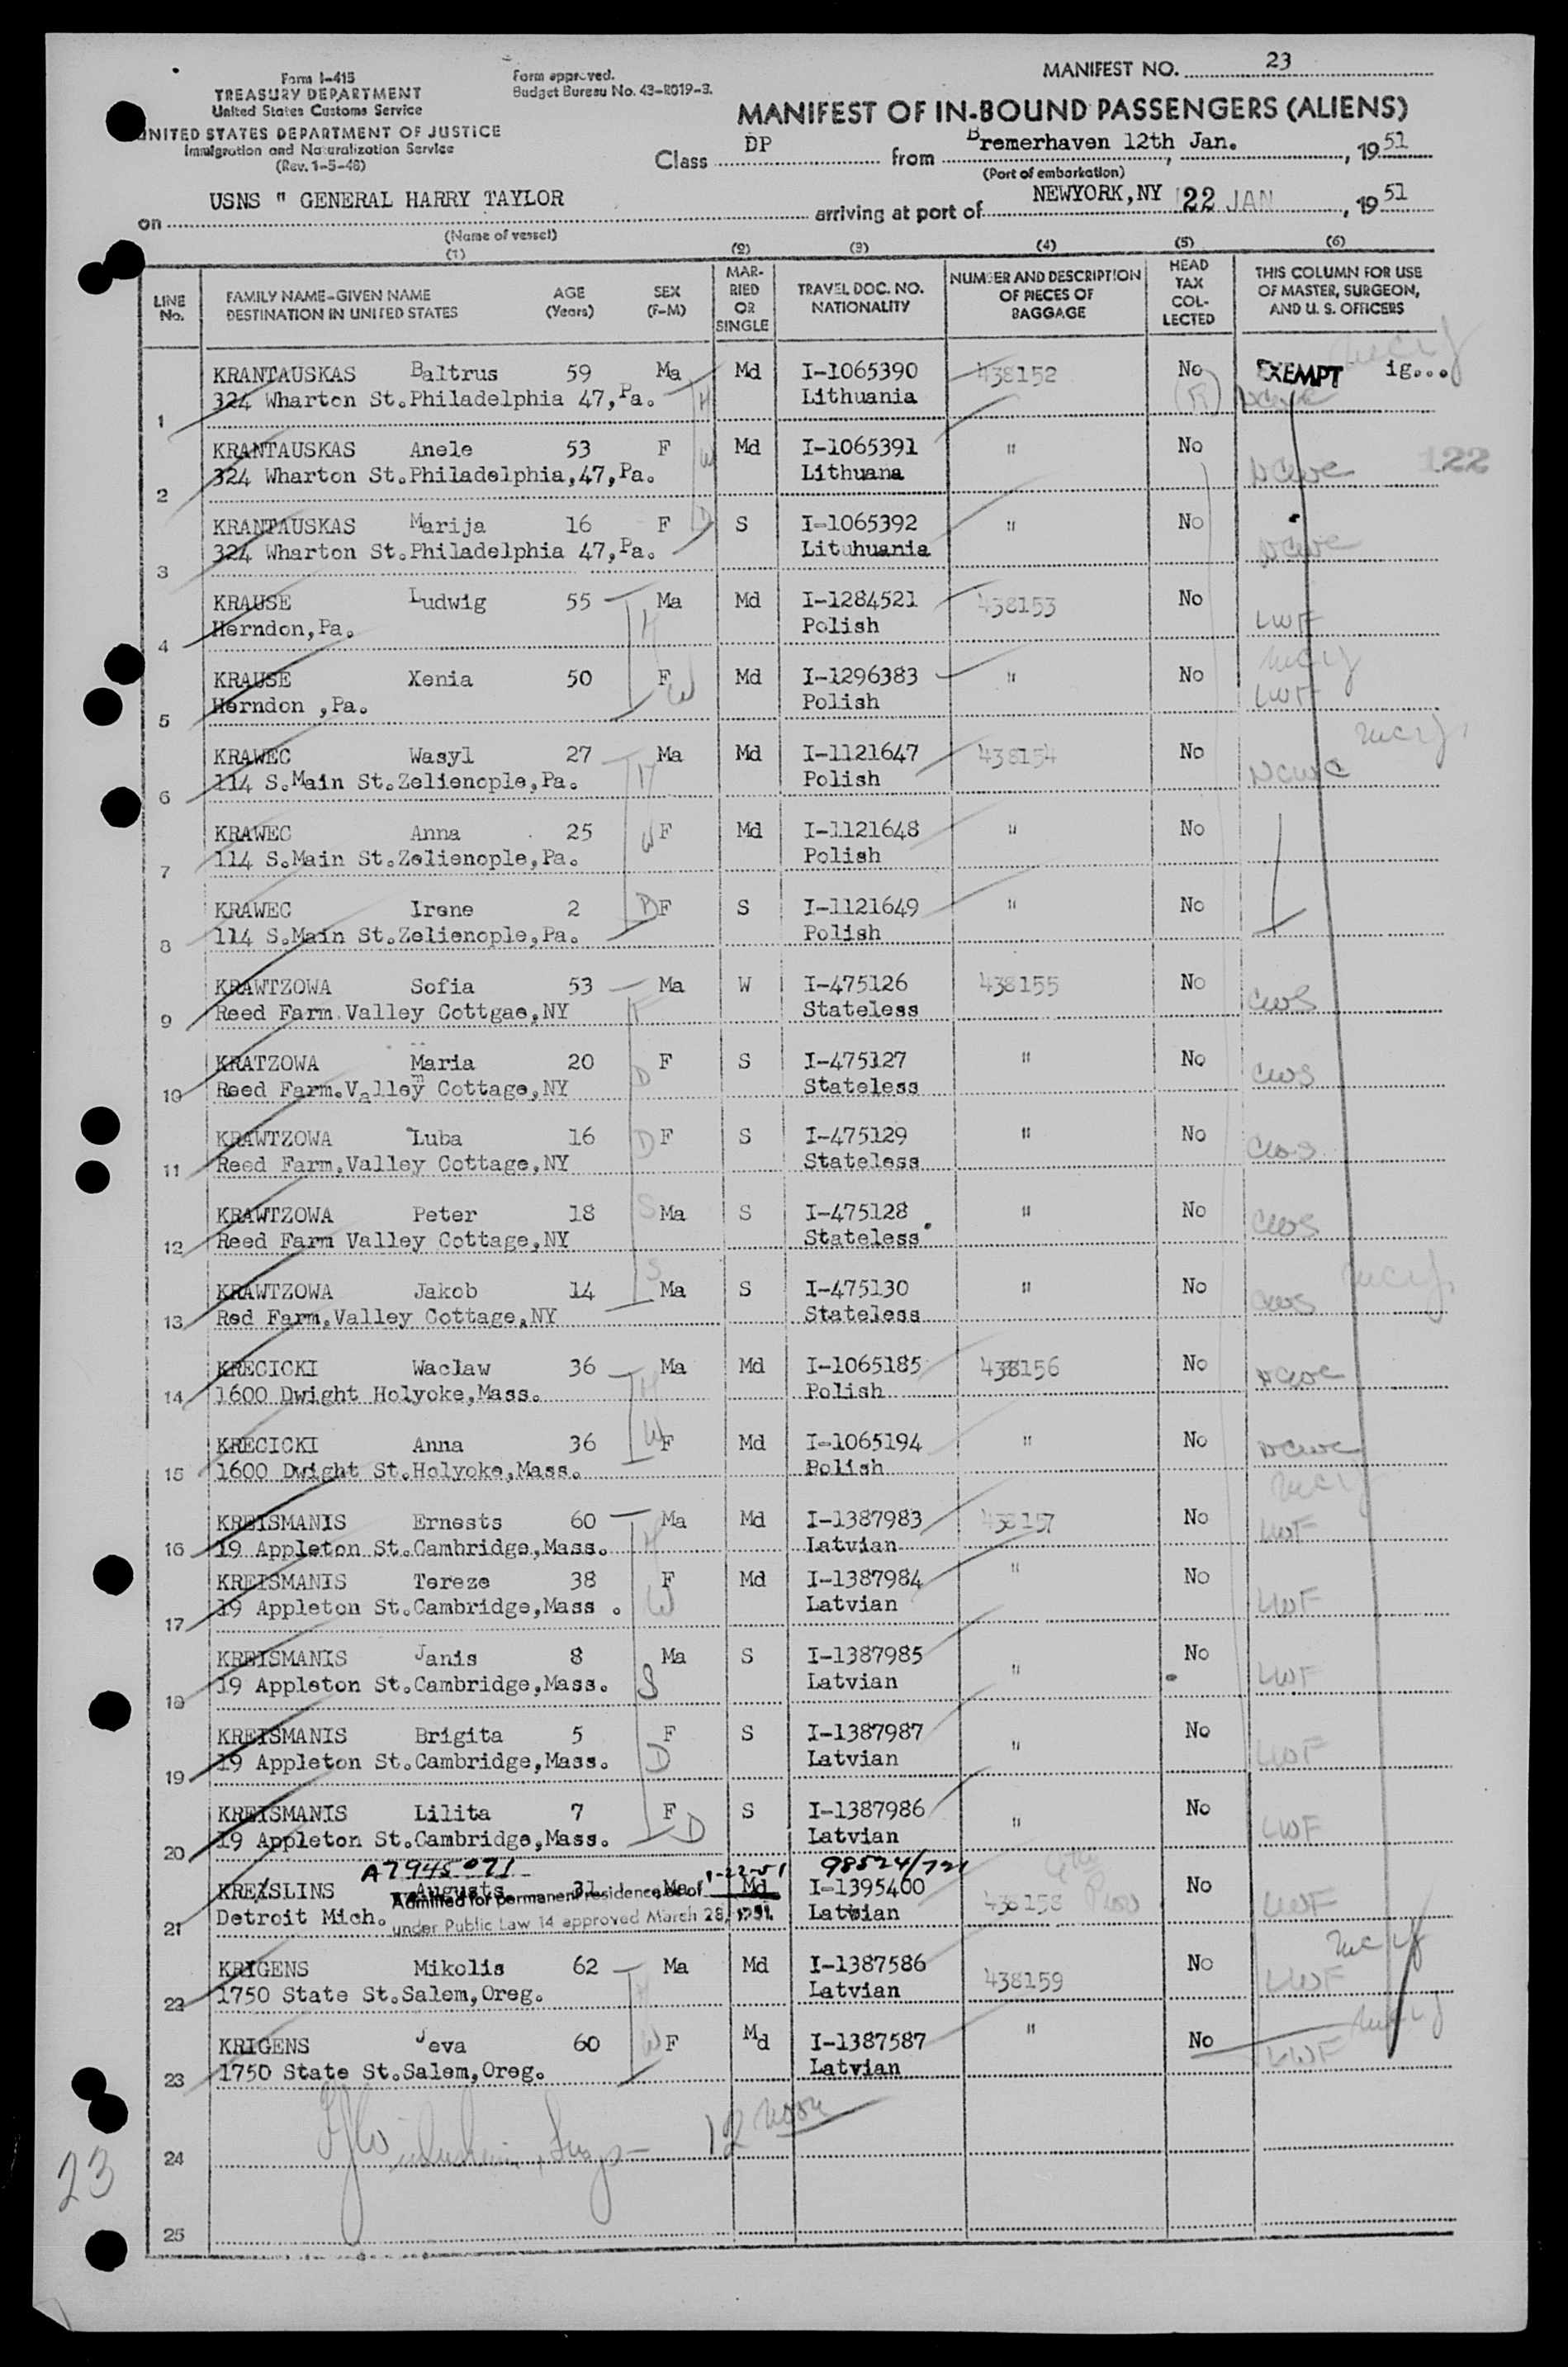 Form I-415
TREASURY DEPARTMENT
United States Customs Service
UNITED STATES DEPARTMENT OF JUSTICE
Immigration and Naturalization Service
(Rev. 1-5-48)
Form approved.
Budget Bureau No. 43-R019-3.
MANIFEST NO. 23
MANIFEST OF IN-BOUND PASSENGERS (ALIENS)
Class DP from Bremerhaven 12th Jan. , 1951
(Port of embarkation)
on USNS " GENERAL HARRY TAYLOR arriving at port of NEWYORK,NY 22 JAN , 1951
(Name of vessel)
(1) (2) (3) (4) (5) (6)
LINE No. FAMILY NAME-GIVEN NAME DESTINATION IN UNITED STATES AGE (Years) SEX (F-M) MARRIED OR SINGLE TRAVEL DOC. NO. NATIONALITY NUMBER AND DESCRIPTION OF PIECES OF BAGGAGE HEAD TAX COLLECTED THIS COLUMN FOR USE OF MASTER, SURGEON, AND U. S. OFFICERS
KRANTAUSKAS Baltrus 59 Ma Md I-1065390 438152 No EXEMPT ig...
1 324 Wharton St.Philadelphia 47,Pa. H Lithuania (R) NCWC
KRANTAUSKAS Anele 53 F Md I-1065391 " No
2 324 Wharton St.Philadelphia,47,Pa. W Lithuana NCWC 122
KRANTAUSKAS Marija 16 F D S I-1065392 " No
3 324 Wharton St.Philadelphia 47,Pa. Lituhuania NCWC
KRAUSE Ludwig 55 Ma Md I-1284521 438153 No
4 Herndon,Pa. H Polish LWF
KRAUSE Xenia 50 F Md I-1296383 " No
5 Herndon ,Pa. W Polish LWF
KRAWEC Wasyl 27 Ma Md I-1121647 438154 No
6 114 S.Main St.Zelienople,Pa. H Polish NCWC
KRAWEC Anna 25 F Md I-1121648 " No
7 114 S.Main St.Zelienople,Pa. W Polish
KRAWEC Irene 2 D F S I-1121649 " No
8 114 S.Main St.Zelienople,Pa. Polish
KRAWTZOWA Sofia 53 Ma W I-475126 438155 No
9 Reed Farm.Valley Cottgae,NY Stateless CWS
KRATZOWA Maria 20 F S I-475127 " No
10 Reed Farm.Valley Cottage,NY D Stateless CWS
KRAWTZOWA Luba 16 D F S I-475129 " No
11 Reed Farm.Valley Cottage,NY Stateless CWS
KRAWTZOWA Peter 18 S Ma S I-475128 " No
12 Reed Farm Valley Cottage,NY Stateless CWS
KRAWTZOWA Jakob 14 S Ma S I-475130 " No
13 Red Farm.Valley Cottage.NY Stateless CWS
KRECICKI Waclaw 36 Ma Md I-1065185 438156 No
14 1600 Dwight Holyoke,Mass. H Polish NCWC
KRECICKI Anna 36 W F Md I-1065194 " No
15 1600 Dwight St.Holyoke,Mass. Polish NCWC
KREISMANIS Ernests 60 Ma Md I-1387983 438157 No
16 19 Appleton St.Cambridge,Mass. H Latvian LWF
KREISMANIS Tereze 38 F Md I-1387984 " No
17 19 Appleton St.Cambridge,Mass . W Latvian LWF
KREISMANIS Janis 8 Ma S I-1387985 " No
18 19 Appleton St.Cambridge,Mass. S Latvian LWF
KREISMANIS Brigita 5 F S I-1387987 " No
19 19 Appleton St.Cambridge,Mass. D Latvian LWF
KREISMANIS Lilita 7 F S I-1387986 " No
20 19 Appleton St.Cambridge,Mass. D Latvian LWF
A7945071 1-22-51 98524/721
KREISLINS Augusts 31 Ma Md I-1395400 438158 No
Admitted for permanent residence as of
21 Detroit Mich. under Public Law 14 approved March 28, 1951 Latvian LWF
KRIGENS Mikolis 62 Ma Md I-1387586 438159 No
22 1750 State St.Salem,Oreg. H Latvian LWF
KRIGENS Jeva 60 W F Md I-1387587 " No
23 1750 State St.Salem,Oreg. Latvian LWF
12 noon
24
23
25